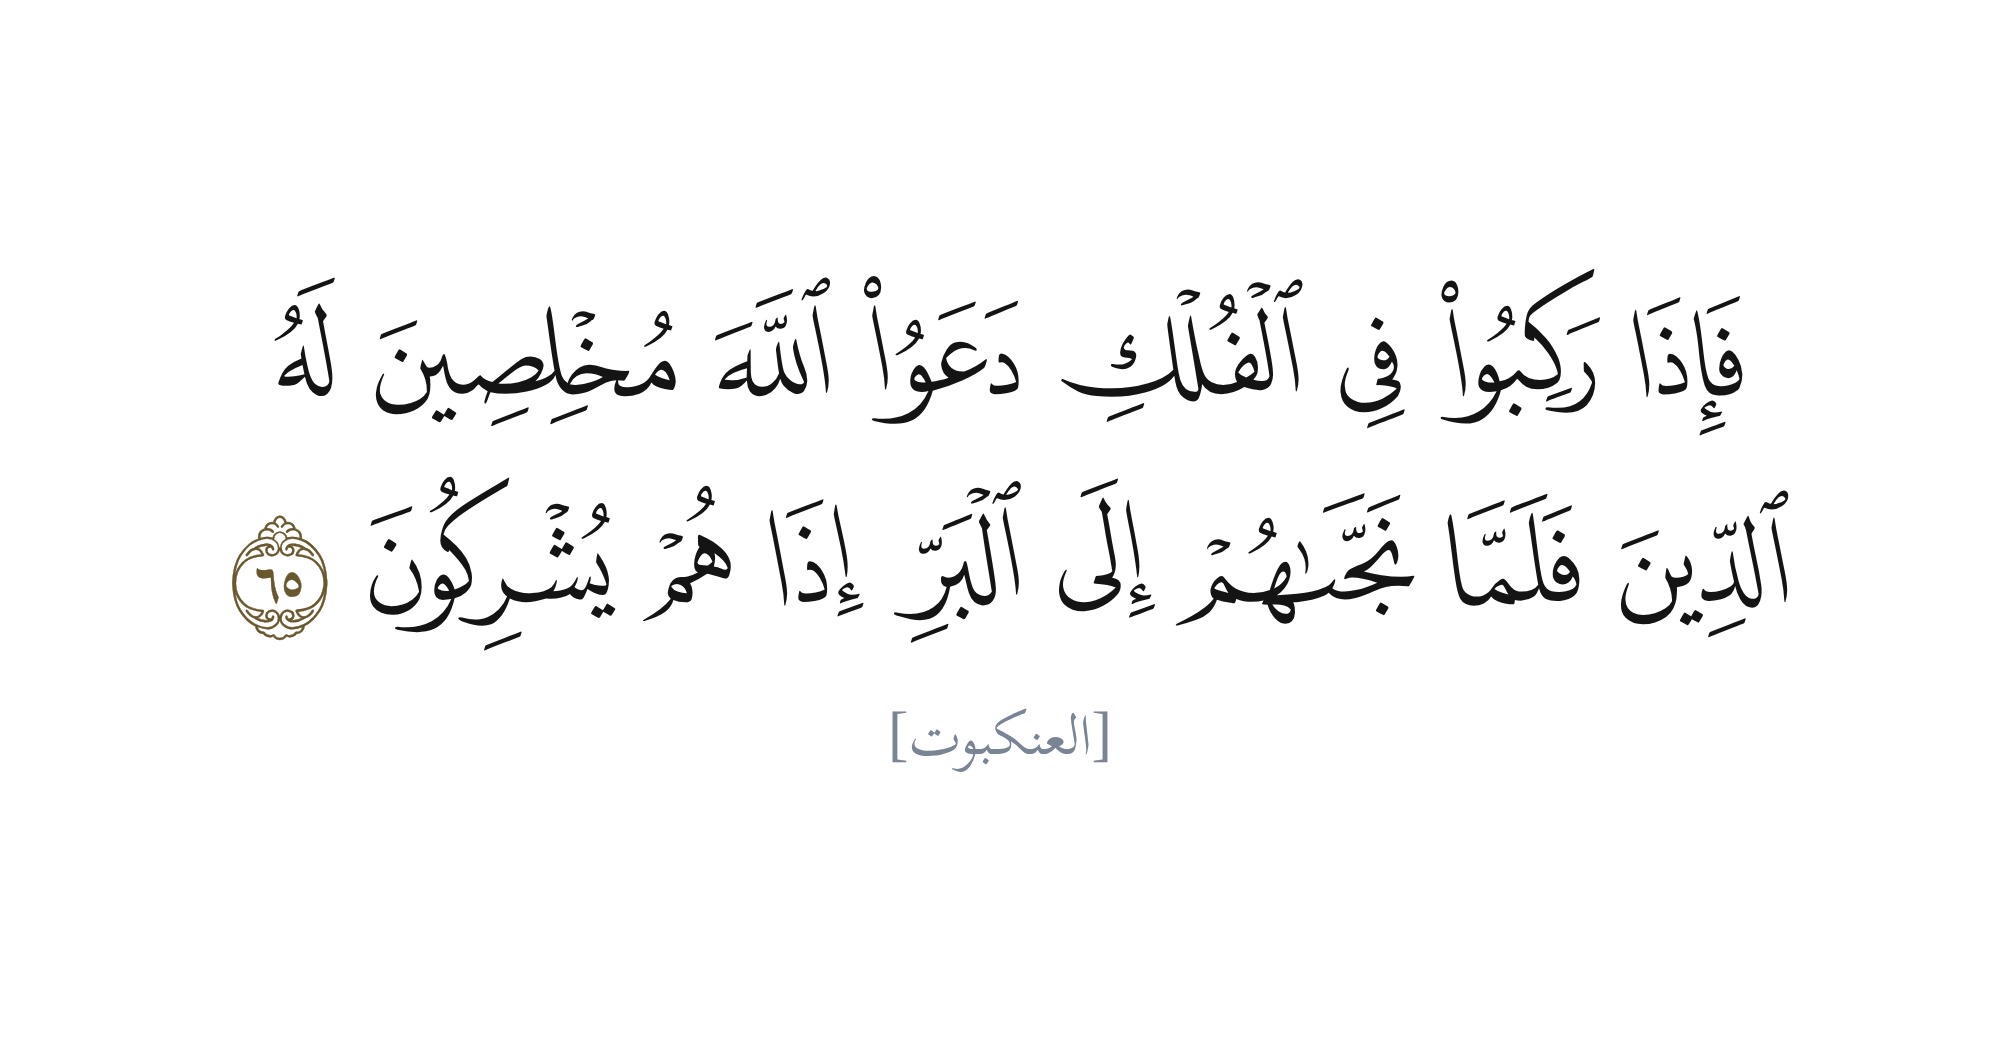 فَإِذَا رَكِبُوا۟ فِى ٱلْفُلْكِ دَعَوُا۟ ٱللَّهَ مُخْلِصِينَ لَهُ
ٱلدِّينَ فَلَمَّا نَجَّىٰهُمْ إِلَى ٱلْبَرِّ إِذَا هُمْ يُشْرِكُونَ ٦٥
[العنكبوت]